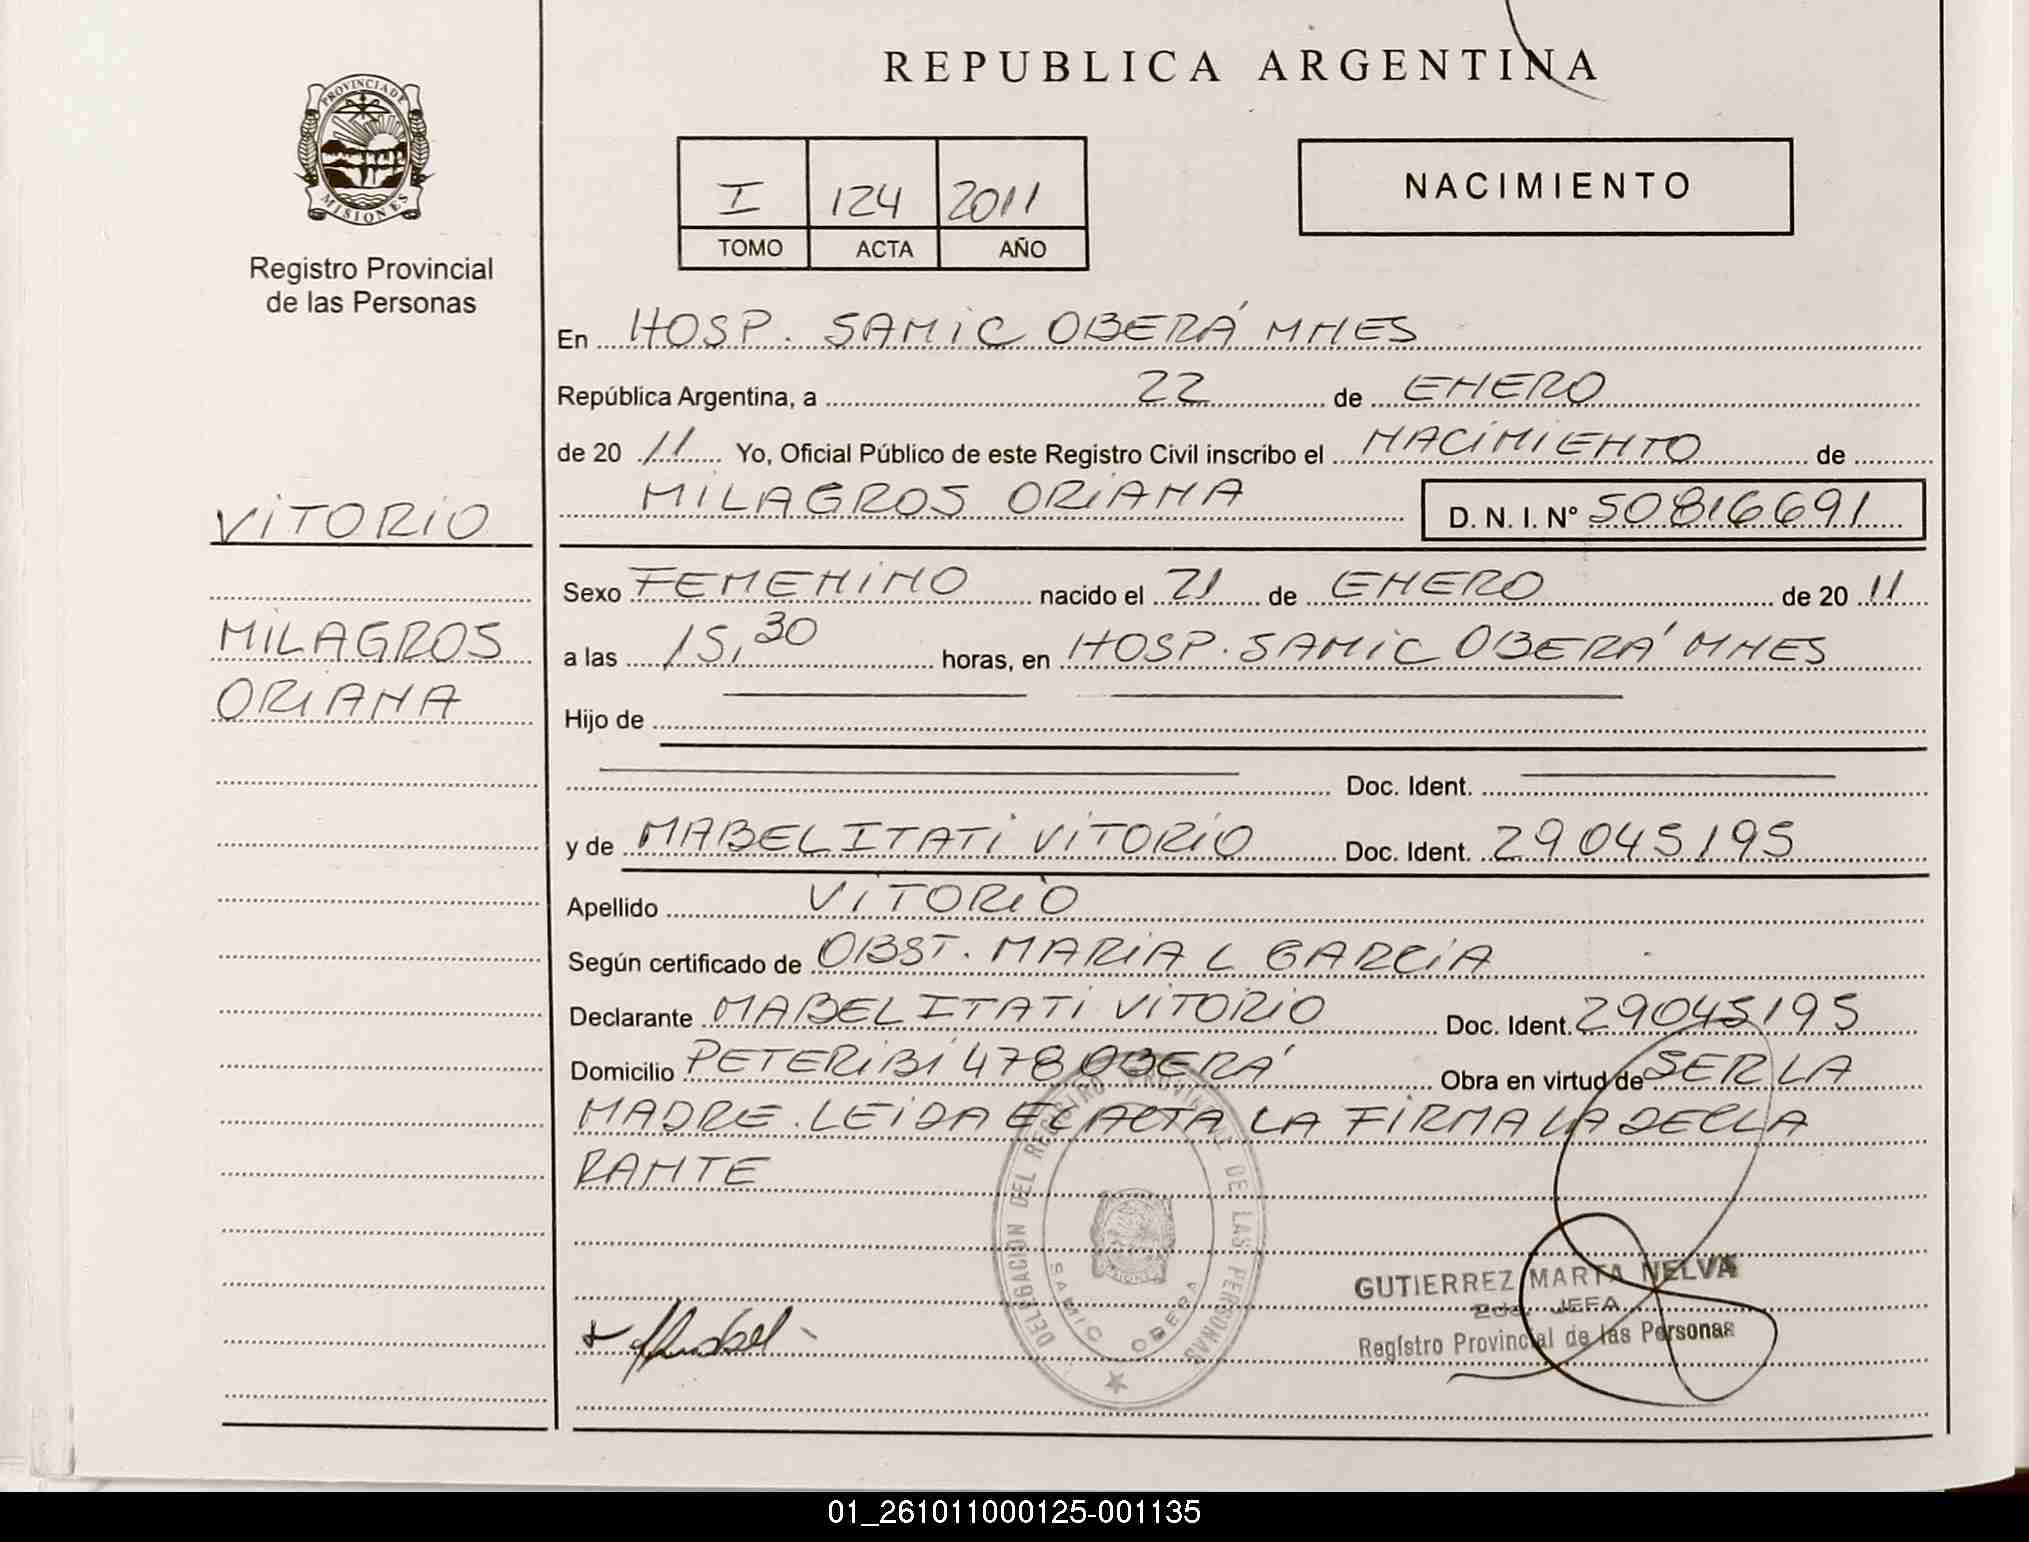 REPUBLICA ARGENTINA
PROVINCIA DE MISIONES
Registro Provincial
de las Personas
I 124 2011
TOMO ACTA AÑO
NACIMIENTO
En HOSP. SAMIC OBERÁ MNES
República Argentina, a 22 de ENERO
de 20 11 Yo, Oficial Público de este Registro Civil inscribo el NACIMIENTO de
MILAGROS ORIANA D. N. I. N° 50816691
VITORIO
MILAGROS
ORIANA
Sexo FEMENINO nacido el 21 de ENERO de 20 11
a las 15,30 horas, en HOSP. SAMIC OBERÁ MNES
Hijo de
Doc. Ident.
y de MABEL ITATI VITORIO Doc. Ident. 29045195
Apellido VITORIO
Según certificado de OBST. MARIA L GARCIA
Declarante MABEL ITATI VITORIO Doc. Ident. 29045195
Domicilio PETERIBI 478 OBERÁ Obra en virtud de SER LA
MADRE. LEIDA EL ACTA LA FIRMA LA DECLA
RANTE
DELEGACIÓN DEL REGISTRO PROVINCIAL DE LAS PERSONAS
SAMIC OBERA
GUTIERREZ MARTA NELVA
2da. JEFA
Registro Provincial de las Personas
01_261011000125-001135